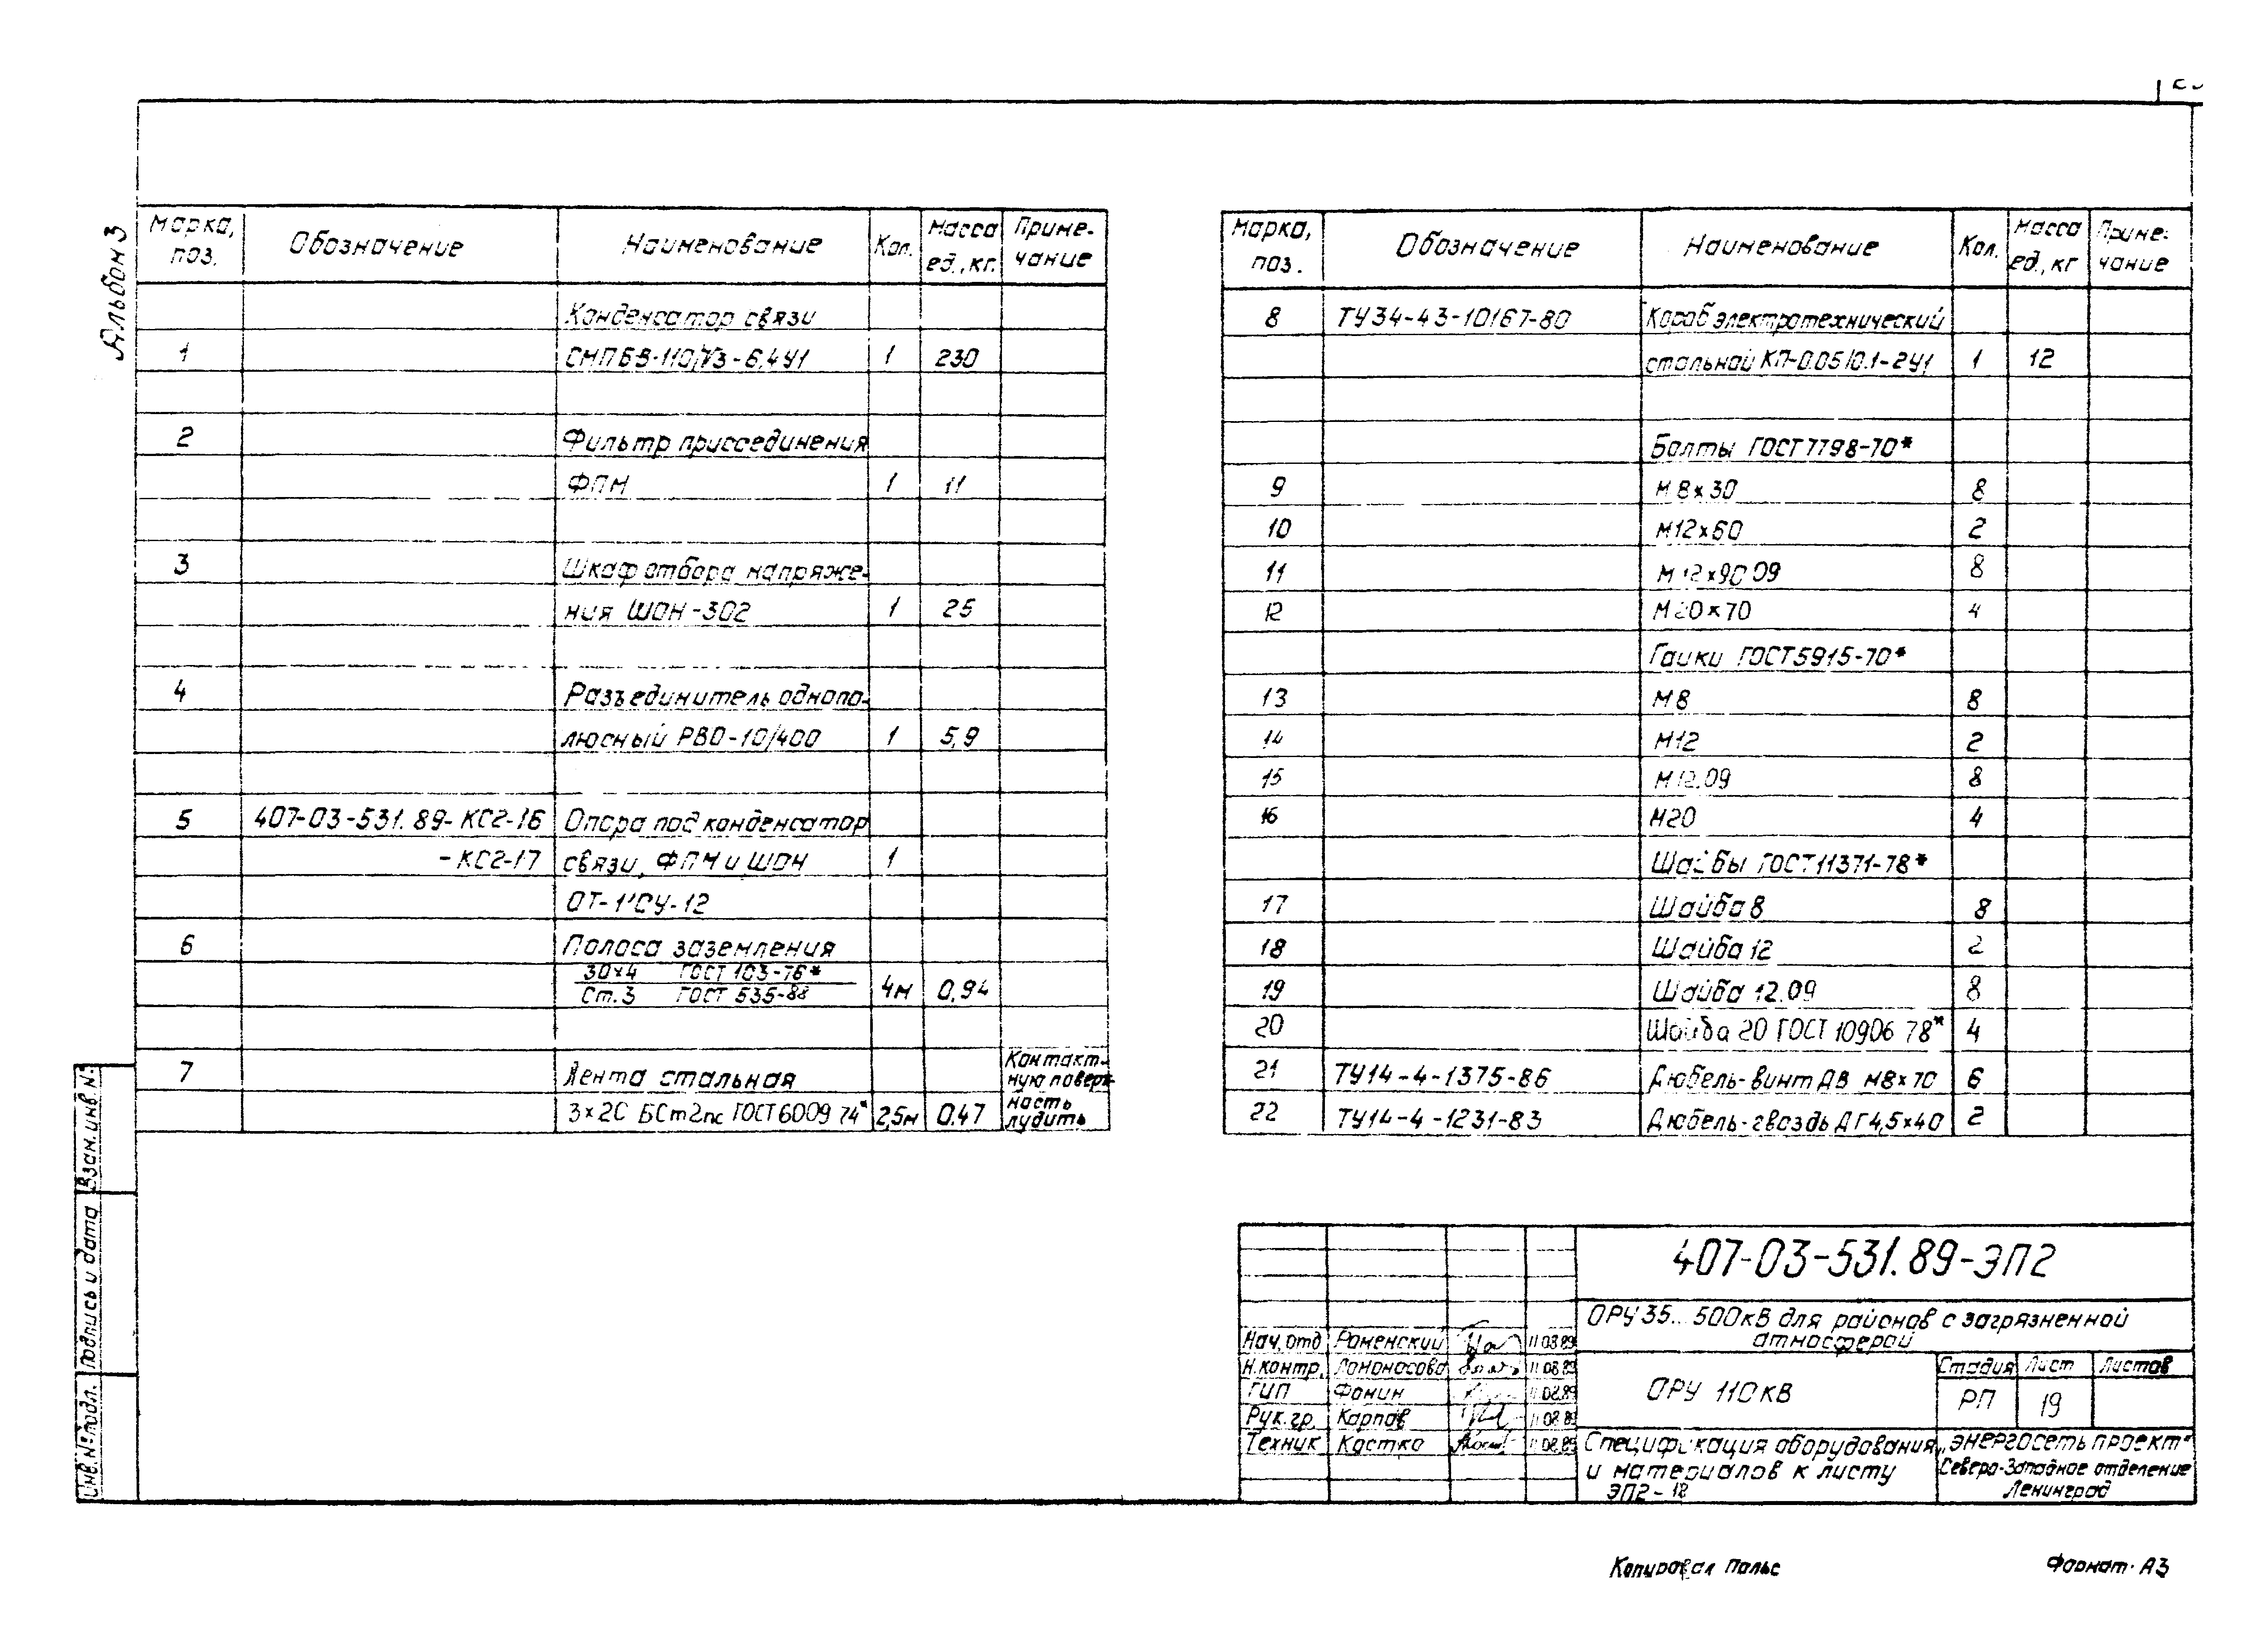 Альбом 3
Марка, поз. Обозначение Наименование Кол. Масса ед., кг. Приме-чание
Конденсатор связи
1 СМПБВ-110/√3-6,4У1 1 230
2 Фильтр присоединения
ФПМ 1 11
3 Шкаф отбора напряже-
ния ШОН-302 1 25
4 Разъединитель однопо-
люсный РВО-10/400 1 5,9
5 407-03-531.89-КС2-16 Опора под конденсатор
-КС2-17 связи, ФПМ и ШОН 1
ОТ-110У-12
6 Полоса заземления
30×4 ГОСТ 103-76*
Ст.3 ГОСТ 535-88 4м 0,94
7 Лента стальная
3×20 БСт2пс ГОСТ 6009 74* 2,5м 0.47
Контакт-
ную поверх-
ность
лудить
Марка, поз. Обозначение Наименование Кол. Масса ед., кг Приме-чание
8 ТУ34-43-10167-80 Короб электротехнический
стальной КП-0.05/0.1-2У1 1 12
Болты ГОСТ 7798-70*
9 М8×30 8
10 М12×60 2
11 М12×90 09 8
12 М20×70 4
Гайки ГОСТ 5915-70*
13 М8 8
14 М12 2
15 М12.09 8
16 М20 4
Шайбы ГОСТ 11371-78*
17 Шайба 8 8
18 Шайба 12 2
19 Шайба 12.09 8
20 Шайба 20 ГОСТ 10906 78* 4
21 ТУ14-4-1375-86 Дюбель-винт ДВ М8×70 6
22 ТУ14-4-1231-83 Дюбель-гвоздь ДГ4,5×40 2
Взам.инв.№
Подпись и дата
Инв.№подл.
407-03-531.89-ЭП2
ОРУ 35... 500кВ для районов с загрязненной
атмосферой
Нач.отд Роменский 11.08.89
Н.контр. Ломоносова 11.08.89
ГИП Фомин 11.08.89
Рук.гр. Карпов 11.08.89
Техник Костко 11.08.89
ОРУ 110кВ
Стадия Лист Листов
РП 19
Спецификация оборудования
и материалов к листу
ЭП2-18
„Энергосетьпроект"
Северо-Западное отделение
Ленинград
Копировал Пальс
Формат А3